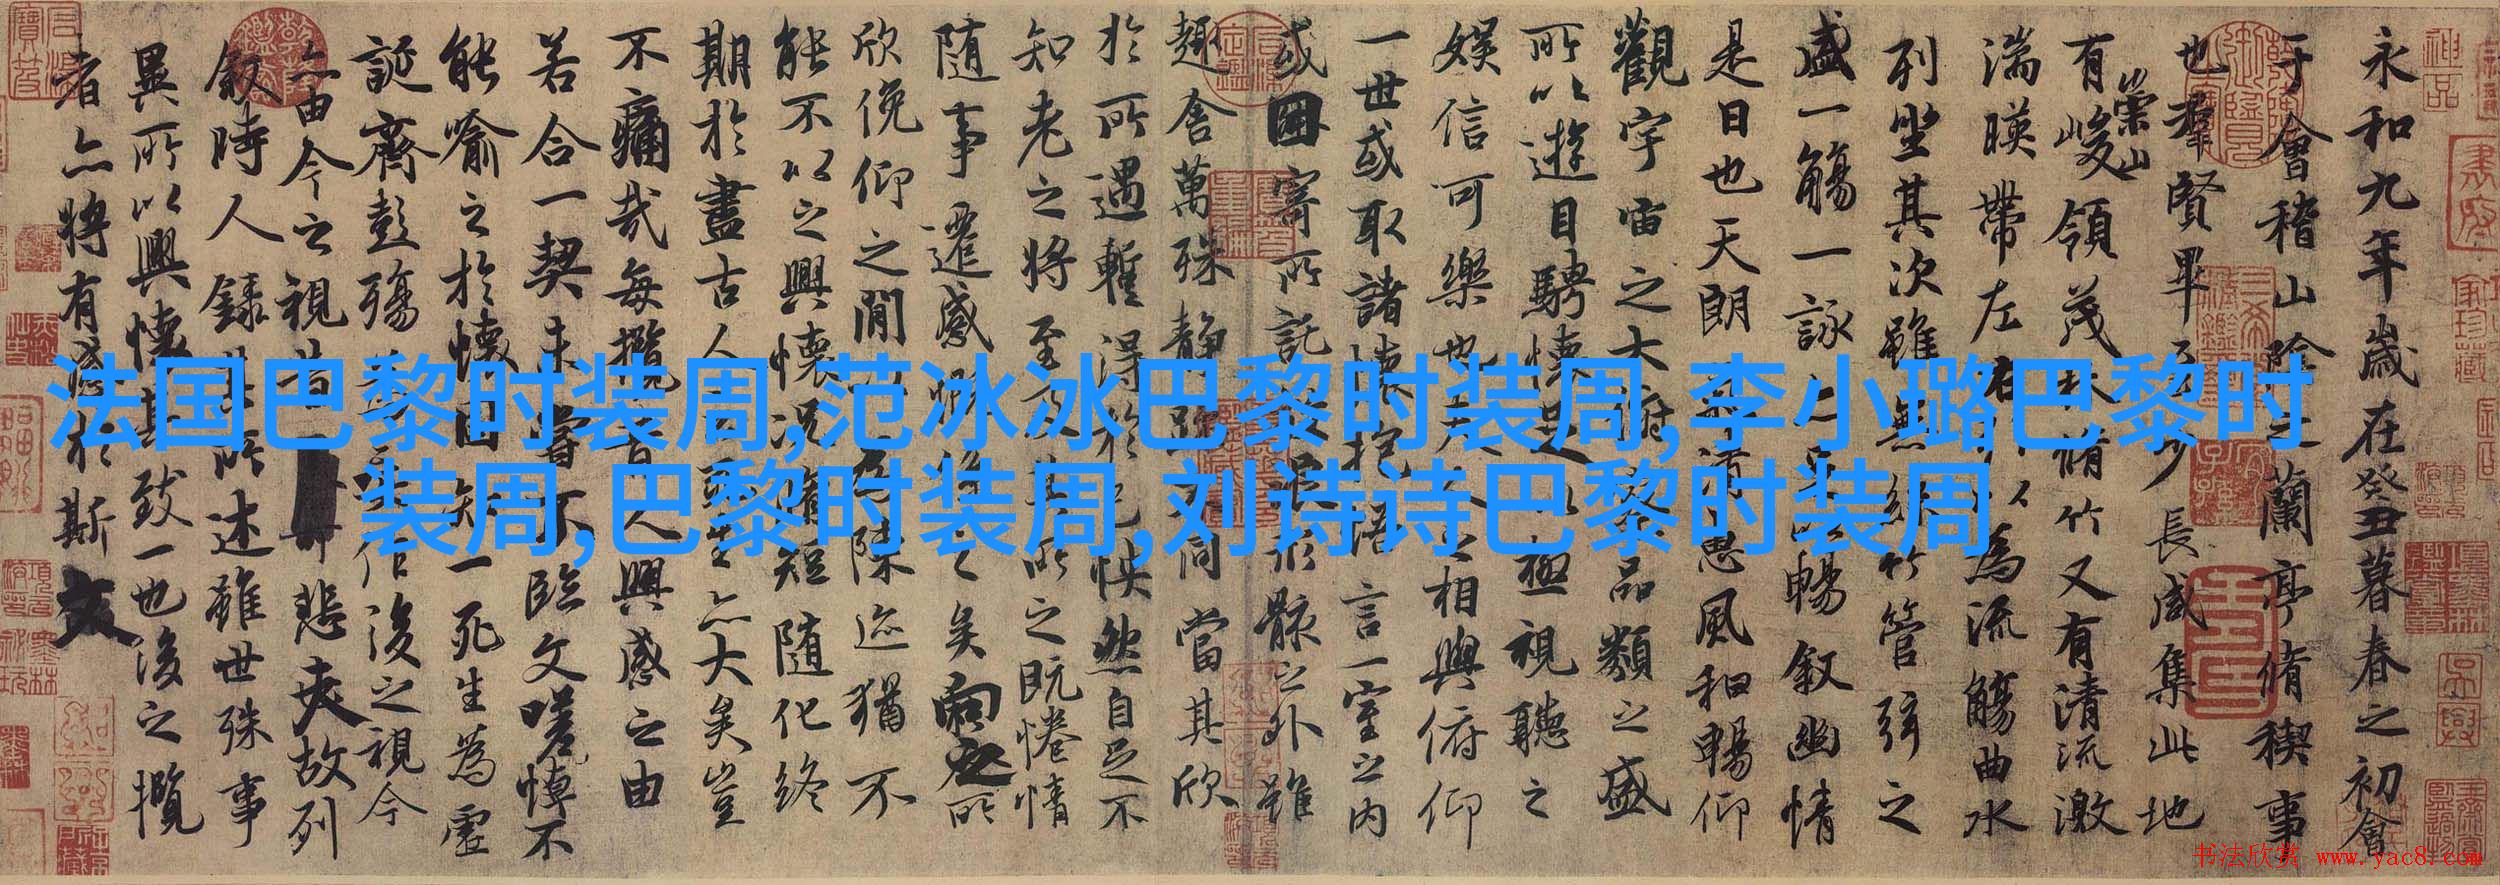 法国巴黎时装周,范冰冰巴黎时装周,李小璐巴黎时
装周,巴黎时装周,刘诗诗巴黎时装周
永和九年歲在癸丑暮春之初會
于會稽山陰之蘭亭脩稧事
也羣賢畢至少長咸集此地
有崇山峻領茂林脩竹又有清流激
湍暎帶左右引以為流觴曲水
列坐其次雖無絲竹管弦之
盛一觴一詠亦足以暢叙幽情
是日也天朗氣清惠風和暢仰
觀宇宙之大俯察品類之盛
所以遊目騁懷足以極視聽之
娛信可樂也夫人之相與俯仰
一世或取諸懷抱悟言一室之內
或因寄所託放浪形骸之外雖
趣舍萬殊靜躁不同當其欣
於所遇暫得於己怏然自足不
知老之將至及其所之既惓情
隨事遷感慨係之矣向之所
欣俛仰之閒以為陳迹猶不
能不以之興懷況脩短隨化終
期於盡古人云死生亦大矣豈
不痛哉每攬昔人興感之由
若合一契未嘗不臨文嗟悼不
能喻之於懷固知一死生為虛
誕齊彭殤為妄作後之視今
亦由今之視昔悲夫故列
叙時人錄其所述雖世殊事
異所以興懷其致一也後之攬
者亦將有感於斯文
书法欣赏 www.yac8.com